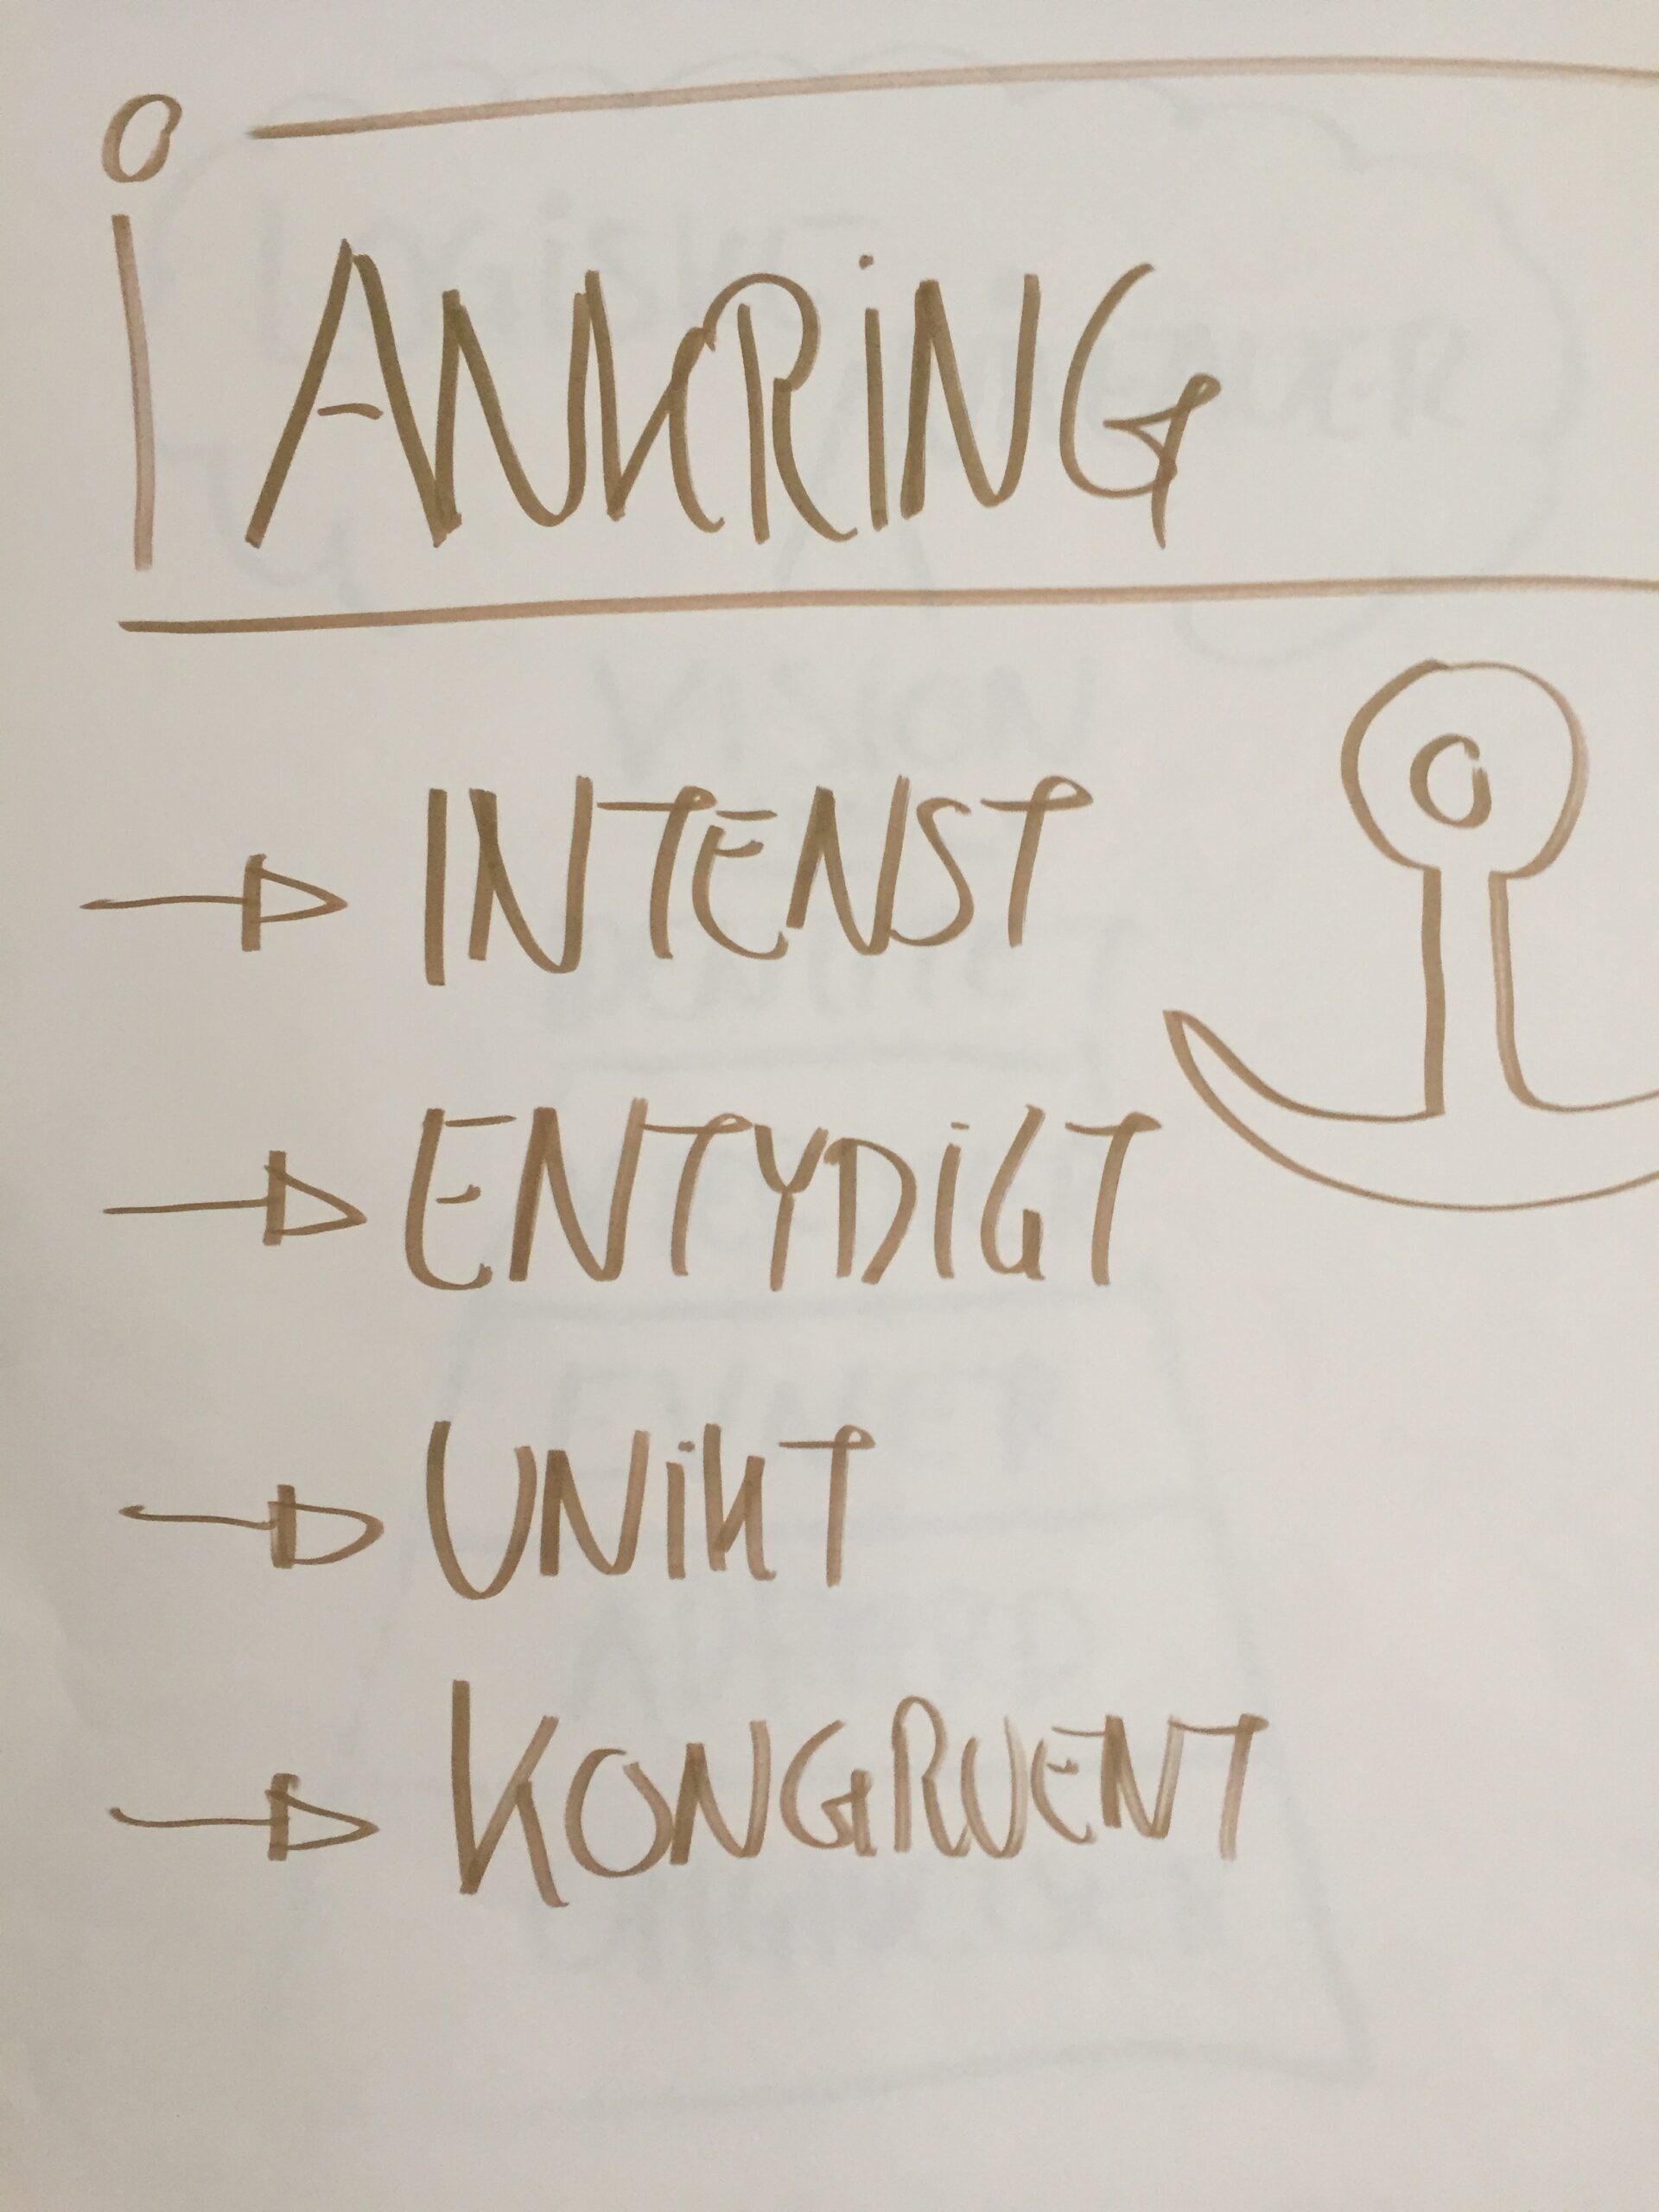 ANKRING
INTENST
ENTYDIGT
UNIKT
KONGRUENT